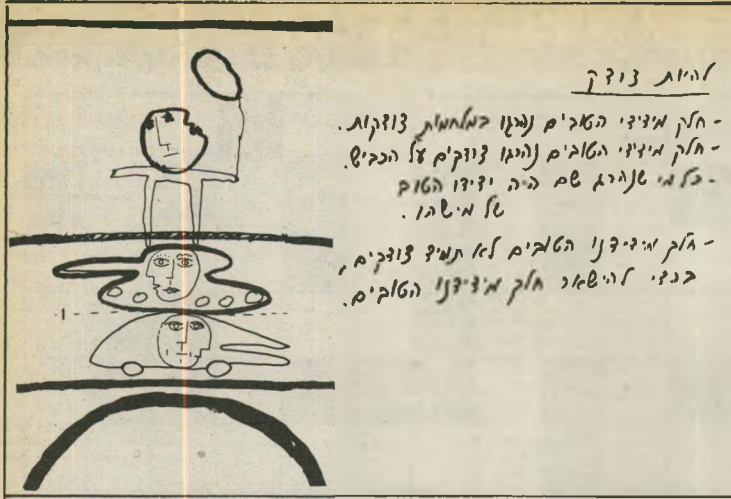 להיות צודק
- חלק מידידי הטובים נהרגו במלחמות צודקות.
- חלק מידידי הטובים נהרגו צודקים על הכביש.
- כל מי שנהרג שם היה ידידו הטוב
של מישהו.
- חלק מידידנו הטובים לא תמיד צודקים,
בכדי להישאר חלק מידידנו הטובים.